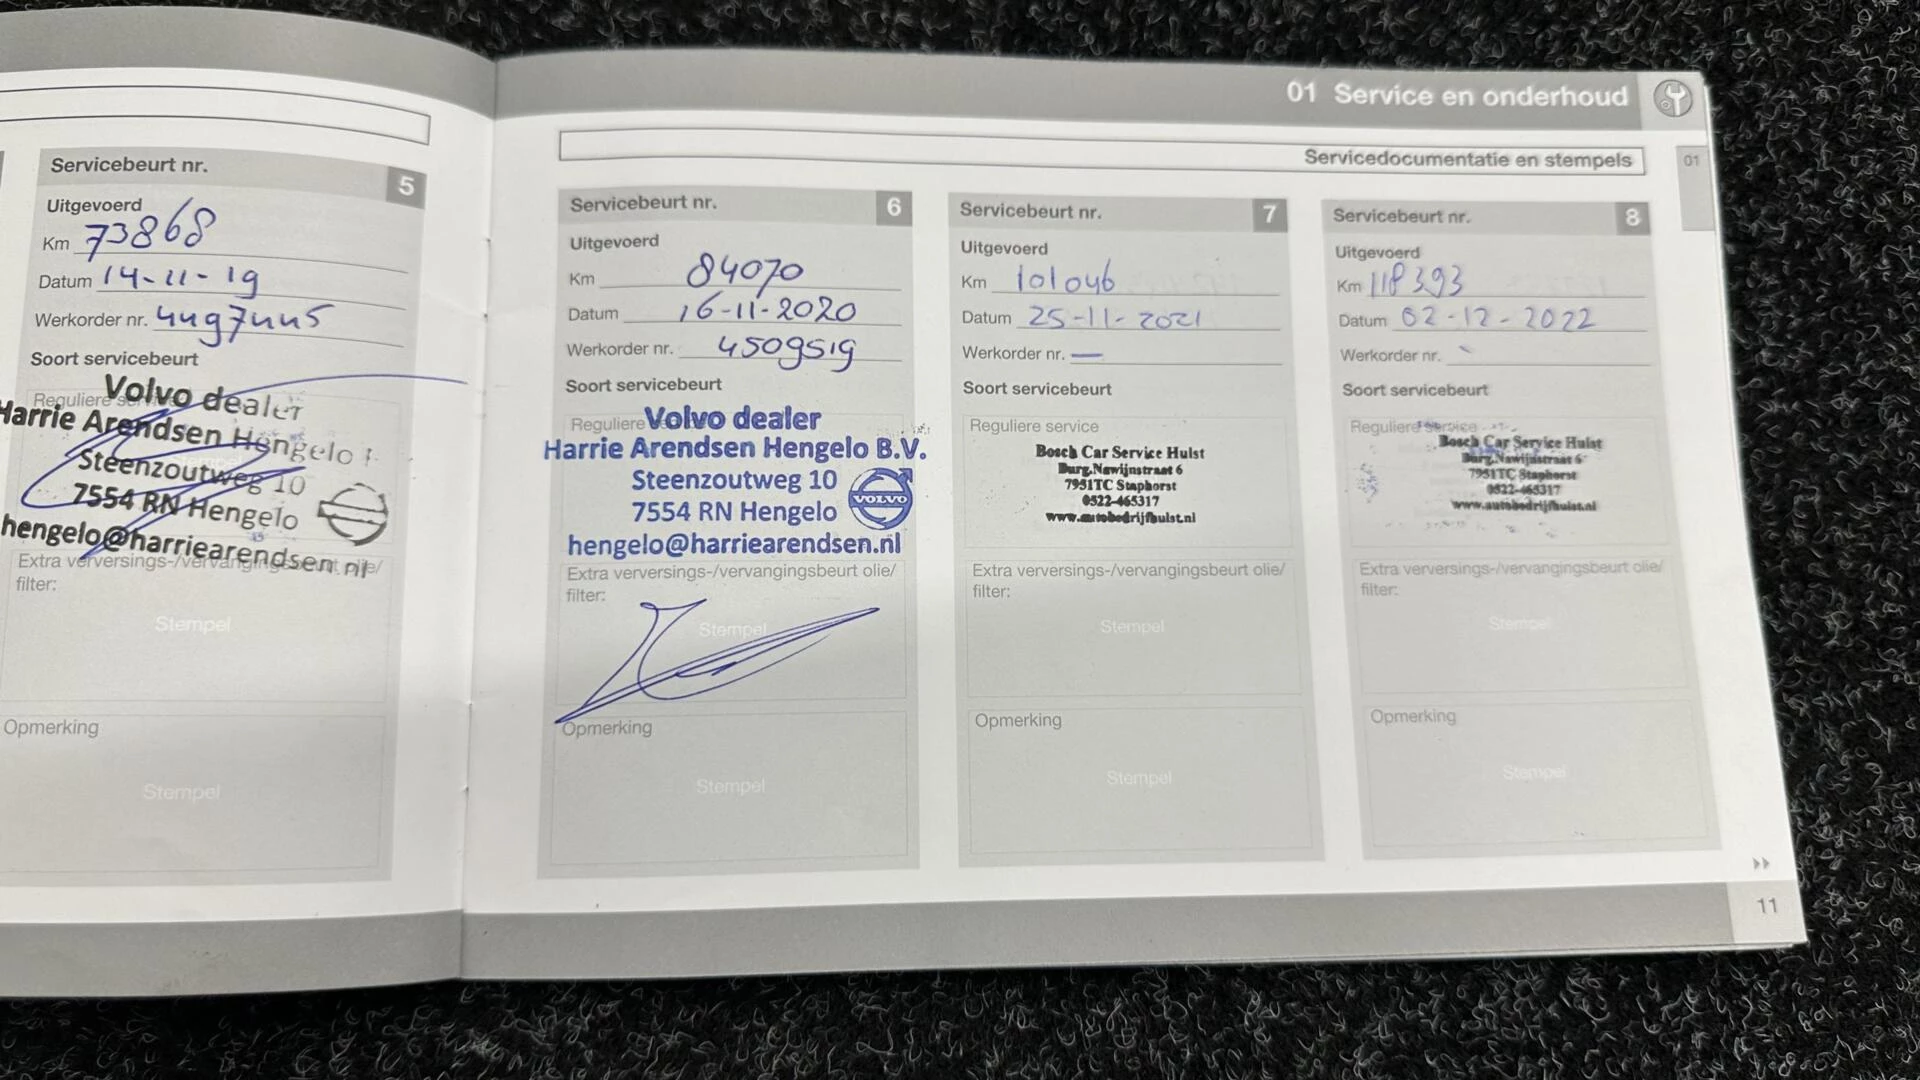 01 Service en onderhoud
Servicedocumentatie en stempels
01
Servicebeurt nr. 5
Uitgevoerd
Km 73868
Datum 14-11-19
Werkorder nr. 4497445
Soort servicebeurt
Reguliere
Volvo dealer
Harrie Arendsen Hengelo
Steenzoutweg 10
7554 RN Hengelo
hengelo@harriearendsen.nl
Extra verversings-/vervangingsbeurt olie/
filter:
Stempel
Opmerking
Stempel
Servicebeurt nr. 6
Uitgevoerd
Km 84070
Datum 16-11-2020
Werkorder nr. 4509519
Soort servicebeurt
Reguliere
Volvo dealer
Harrie Arendsen Hengelo B.V.
Steenzoutweg 10
VOLVO
7554 RN Hengelo
hengelo@harriearendsen.nl
Extra verversings-/vervangingsbeurt olie/
filter:
Stempel
Opmerking
Stempel
Servicebeurt nr. 7
Uitgevoerd
Km 101046
Datum 25-11-2021
Werkorder nr. —
Soort servicebeurt
Reguliere service
Bosch Car Service Hulst
Burg.Nawijnstraat 6
7951TC Staphorst
0522-465317
www.autobedrijfhulst.nl
Extra verversings-/vervangingsbeurt olie/
filter:
Stempel
Opmerking
Stempel
Servicebeurt nr. 8
Uitgevoerd
Km 118393
Datum 02-12-2022
Werkorder nr.
Soort servicebeurt
Reguliere service
Bosch Car Service Hulst
Burg.Nawijnstraat 6
7951TC Staphorst
0522-465317
www.autobedrijfhulst.nl
Extra verversings-/vervangingsbeurt olie/
filter:
Stempel
Opmerking
Stempel
11